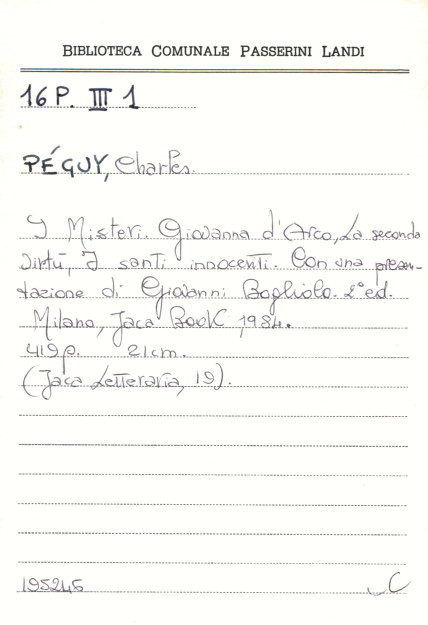 BIBLIOTECA COMUNALE PASSERINI LANDI
16 P. III 1
PÉGUY, Charles.
I Misteri. Giovanna d'Arco, La seconda
virtù, I santi innocenti. Con una presen-
tazione di Giovanni Bogliolo. 2° ed.
Milano, Jaca Book, 1984.
419 p. 21 cm.
(Jaca Letteraria, 19).
195245 C